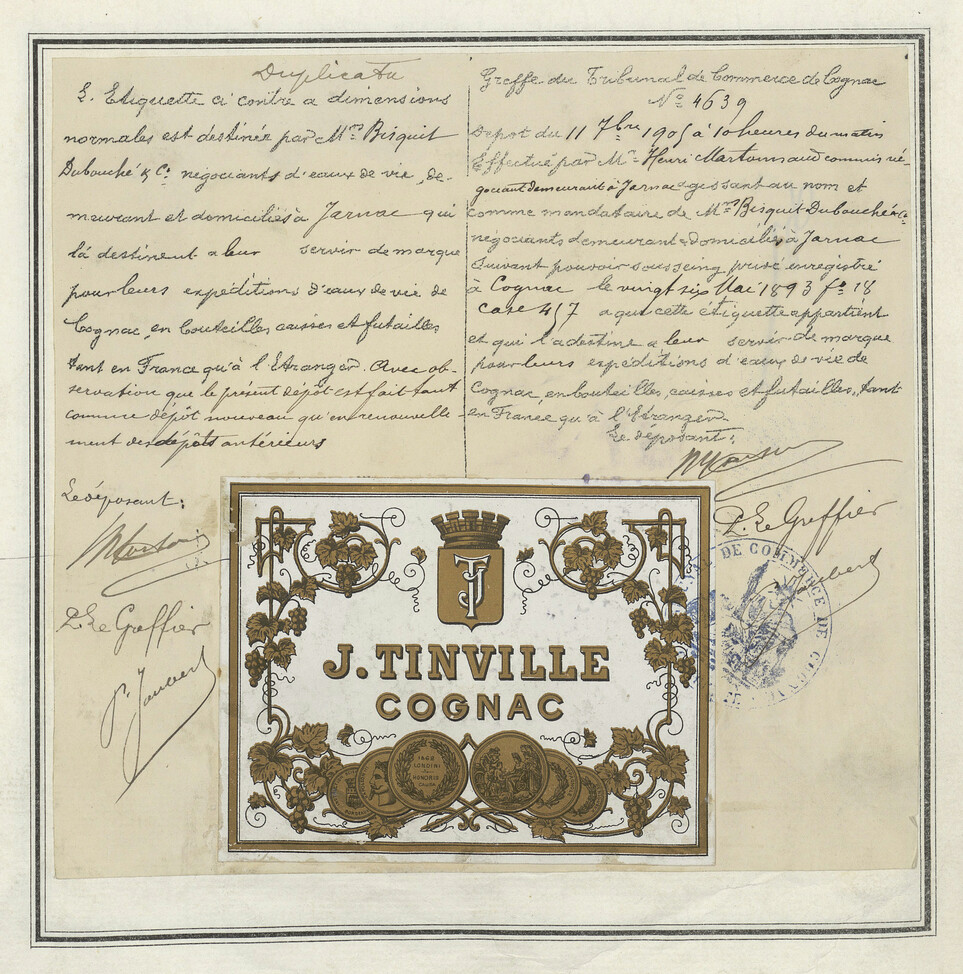 Duplicata
L. Etiquette ci contre a dimensions
normales est destinée par Mrs Bisquit
Dubouché & Ce négociants d'eaux de vie, de-
meurant et domiciliés à Jarnac qui
la destinent a leur servir de marque
pour leurs expéditions d'eaux de vie de
Cognac, en bouteilles caisses et futailles
tant en France qu'à l'Etranger. Avec ob-
servation que le présent dépôt est fait tant
comme dépôt nouveau qu'en renouvelle-
ment des dépôts antérieurs
Le déposant:
P. Le Greffier
P. Joubert
Greffe du Tribunal de Commerce de Cognac
No 4639
Depot du 11 7bre 1905 à 10 heures du matin
Effectué par Mr Henri commis né-
gociant demeurant à Jarnac agissant au nom et
comme mandataire de Mrs Bisquit Dubouché & Ce
négociants demeurant & domiciliés à Jarnac
suivant pouvoir sous seing privé enregistré
à Cognac le vingt six Mai 1893 fo 18
case 457 a qui cette étiquette appartient
et qui l'a destine a leur servir de marque
pour leurs expéditions d'eaux de vie de
Cognac, en bouteilles, caisses et futailles, tant
en France qu'à l'Etranger
Le déposant:
P. Le Greffier
Joubert
DE COMMERCE DE COGNAC
JT
J. TINVILLE
COGNAC
1862
LONDINI
HONORIS
CAUSA